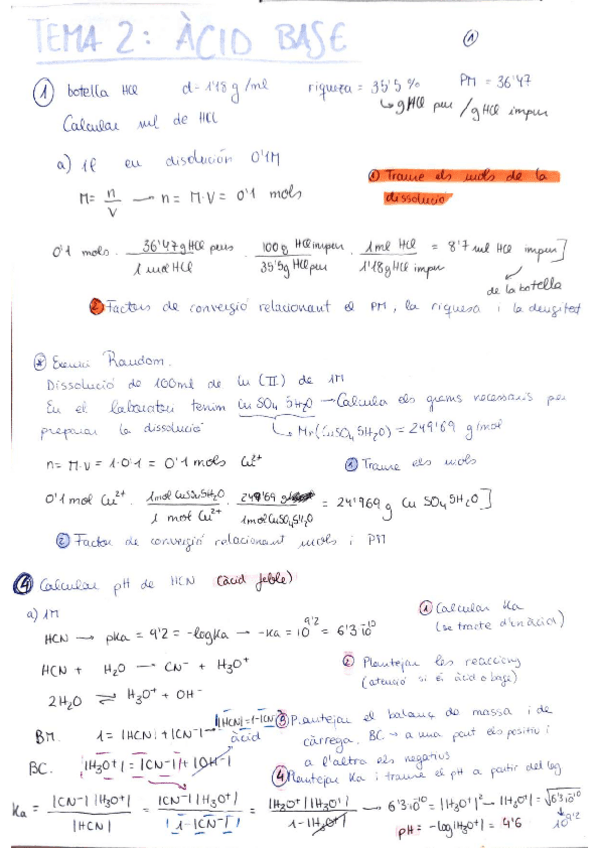 TEMA 2: ÀCID BASE
①
① botella HCl d=1'18 g/ml riqueza = 35'5 % PM = 36'47
↳ gHCl pur / gHCl impur
Calcular ml de HCl
a) 1l en disolución 0'1M
① Traure els mols de la dissolució
M = n/V → n = M·V = 0'1 mols
0'1 mols · 36'47g HCl purs / 1 mol HCl · 100g HCl impur / 35'5g HCl pur · 1ml HCl / 1'18g HCl impur = 8'7 ml HCl impur]
de la botella
② Factors de conversió relacionant el PM, la riquesa i la densitat
Exercici Random.
Dissolució de 100ml de Cu (II) de 1M
En el laboratori tenim CuSO4 5H2O → Calcula els grams necessaris per
preparar la dissolució ↳ Mr(CuSO4 5H2O) = 249'69 g/mol
n = M·V = 1·0'1 = 0'1 mols Cu²⁺ ① Traure els mols
0'1 mol Cu²⁺ · 1mol CuSO4 5H2O / 1 mol Cu²⁺ · 249'69 g / 1mol CuSO4 5H2O = 24'969 g CuSO4 5H2O]
② Factor de conversió relacionant mols i PM
④ Calcular pH de HCN (àcid feble)
a) 1M
① Calcular Ka
(se tracte d'en àcid)
HCN → pKa = 9'2 = -logKa → -Ka = 10^9'2 = 6'3·10^-10
HCN + H2O → CN⁻ + H3O⁺
② Plantejar les reaccions
(atenció si és àcid o base)
2H2O ⇌ H3O⁺ + OH⁻
BM. 1 = |HCN| + |CN⁻| → |HCN| = 1-|CN⁻|
àcid
③ Plantejar el balanç de massa i de
càrrega. BC → a una part els positius i
a l'altra els negatius
BC. |H3O⁺| = |CN⁻| + |OH⁻|
④ Plantejar Ka i traure el pH a partir del log
Ka = |CN⁻| |H3O⁺| / |HCN| = |CN⁻| |H3O⁺| / 1-|CN⁻| = |H3O⁺| |H3O⁺| / 1-|H3O⁺| → 6'3·10^-10 = |H3O⁺|² → |H3O⁺| = √6'3·10^-10
10^9'2
pH = -log|H3O⁺| = 4'6